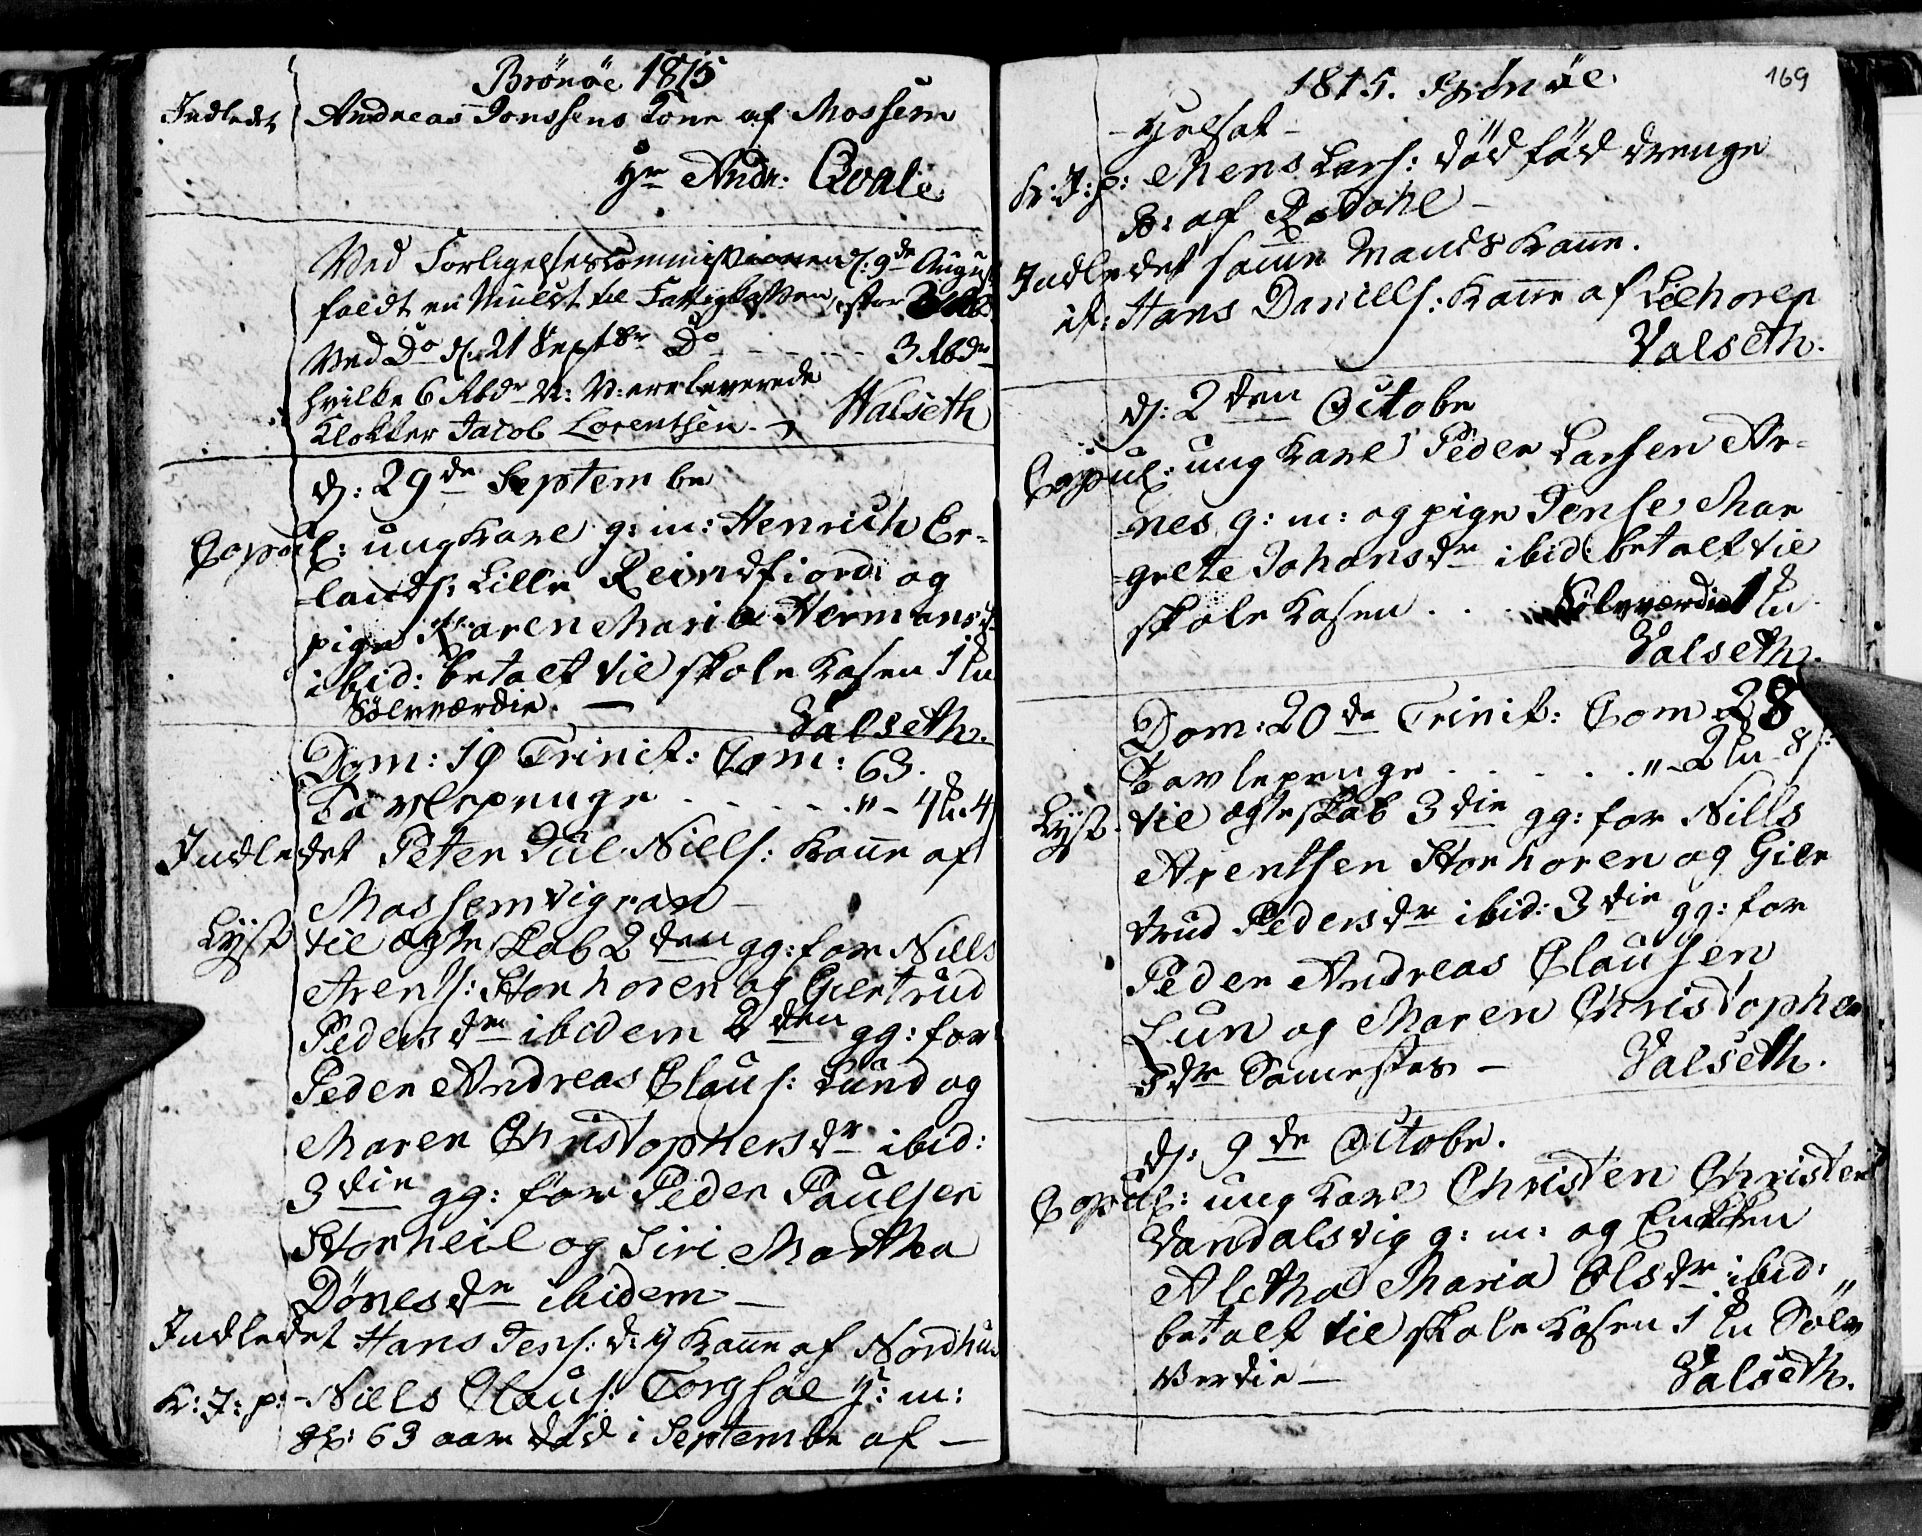 Brönöe 1815
Indledt Andreas Jonssens Kone af Mossem
Hr Andr: Qvale
Ved Forligelsescommissionen d: 9de August
faldt en Mulct til Fattigkassen, stor
Ved Do d: 21 Septbr Do - - - - 3 Rbdr
hvilke 6 Rbdr N: V: ere leverede
Klokker Jacob Lorentsen. - Walseth
d: 29de Septembr
Copul: ungkarl g: m: Henrich Er-
-lands: Lille Reindfiord og
pige Karen Maria Hermansd
ibid: betalt til skole Kasen 1
Sölvværdie. — Valseth.
Dom: 19 Trinit: Com: 63.
Tavlepenge - - - - - " - 4 4
Indledet Peter Niells: Kone af
Mossemvigran —
Lyst til ægteskab 2den gg: for Niels
Arents: Storhoren og Giertrud
Pedersdr ibidem 2den gg: for
Peder Andreas Claus: Lund og
Maren Christophersdr ibid:
3die gg: for Peder Paulsen
Storheil og Siri Martha
Dönesdr ibidem —
Indledet Hans Jens: Kone af Nordhus
K: J: p: - Niels Claus: Torgsöe g: m:
63 aar död i Septembr af —
169
1815. Brönöe.
- Helsot -
K: J: p: Mens Lars: död föd drenge
B: af Rodahl —
Indledet samme Mands Kone.
it: Hans Daniells: Kone af Lilhoren
Valseth.
d: 2den Octobr
Copul: ung karl Peder Larsen Ar-
-nes g: m: og pige Jense Mar
-grete Johansdr ibid: betalt til
skole Kasen . . . Sölvværdie 1
Valseth.
Dom: 20de Trinit: Com 28
Tavlepenge . . . . . " - 2 8 s:
Lyst. til ægteskab 3die gg: for Nills
Arentsen Storhoren og Gier
trud Pedersdr ibid: 3die gg: for
Peder Andreas Clausen
Lun og Maren Christopher
dr Samestæs — Valseth.
d: 9de Octobr.
Copul: ung karl Christen Christen
Vandalsvig g: m: og Enkken
Aletha Maria Olsdr ibid:
betalt til skole Kasen 1 Sölv
Verdie — Valseth.